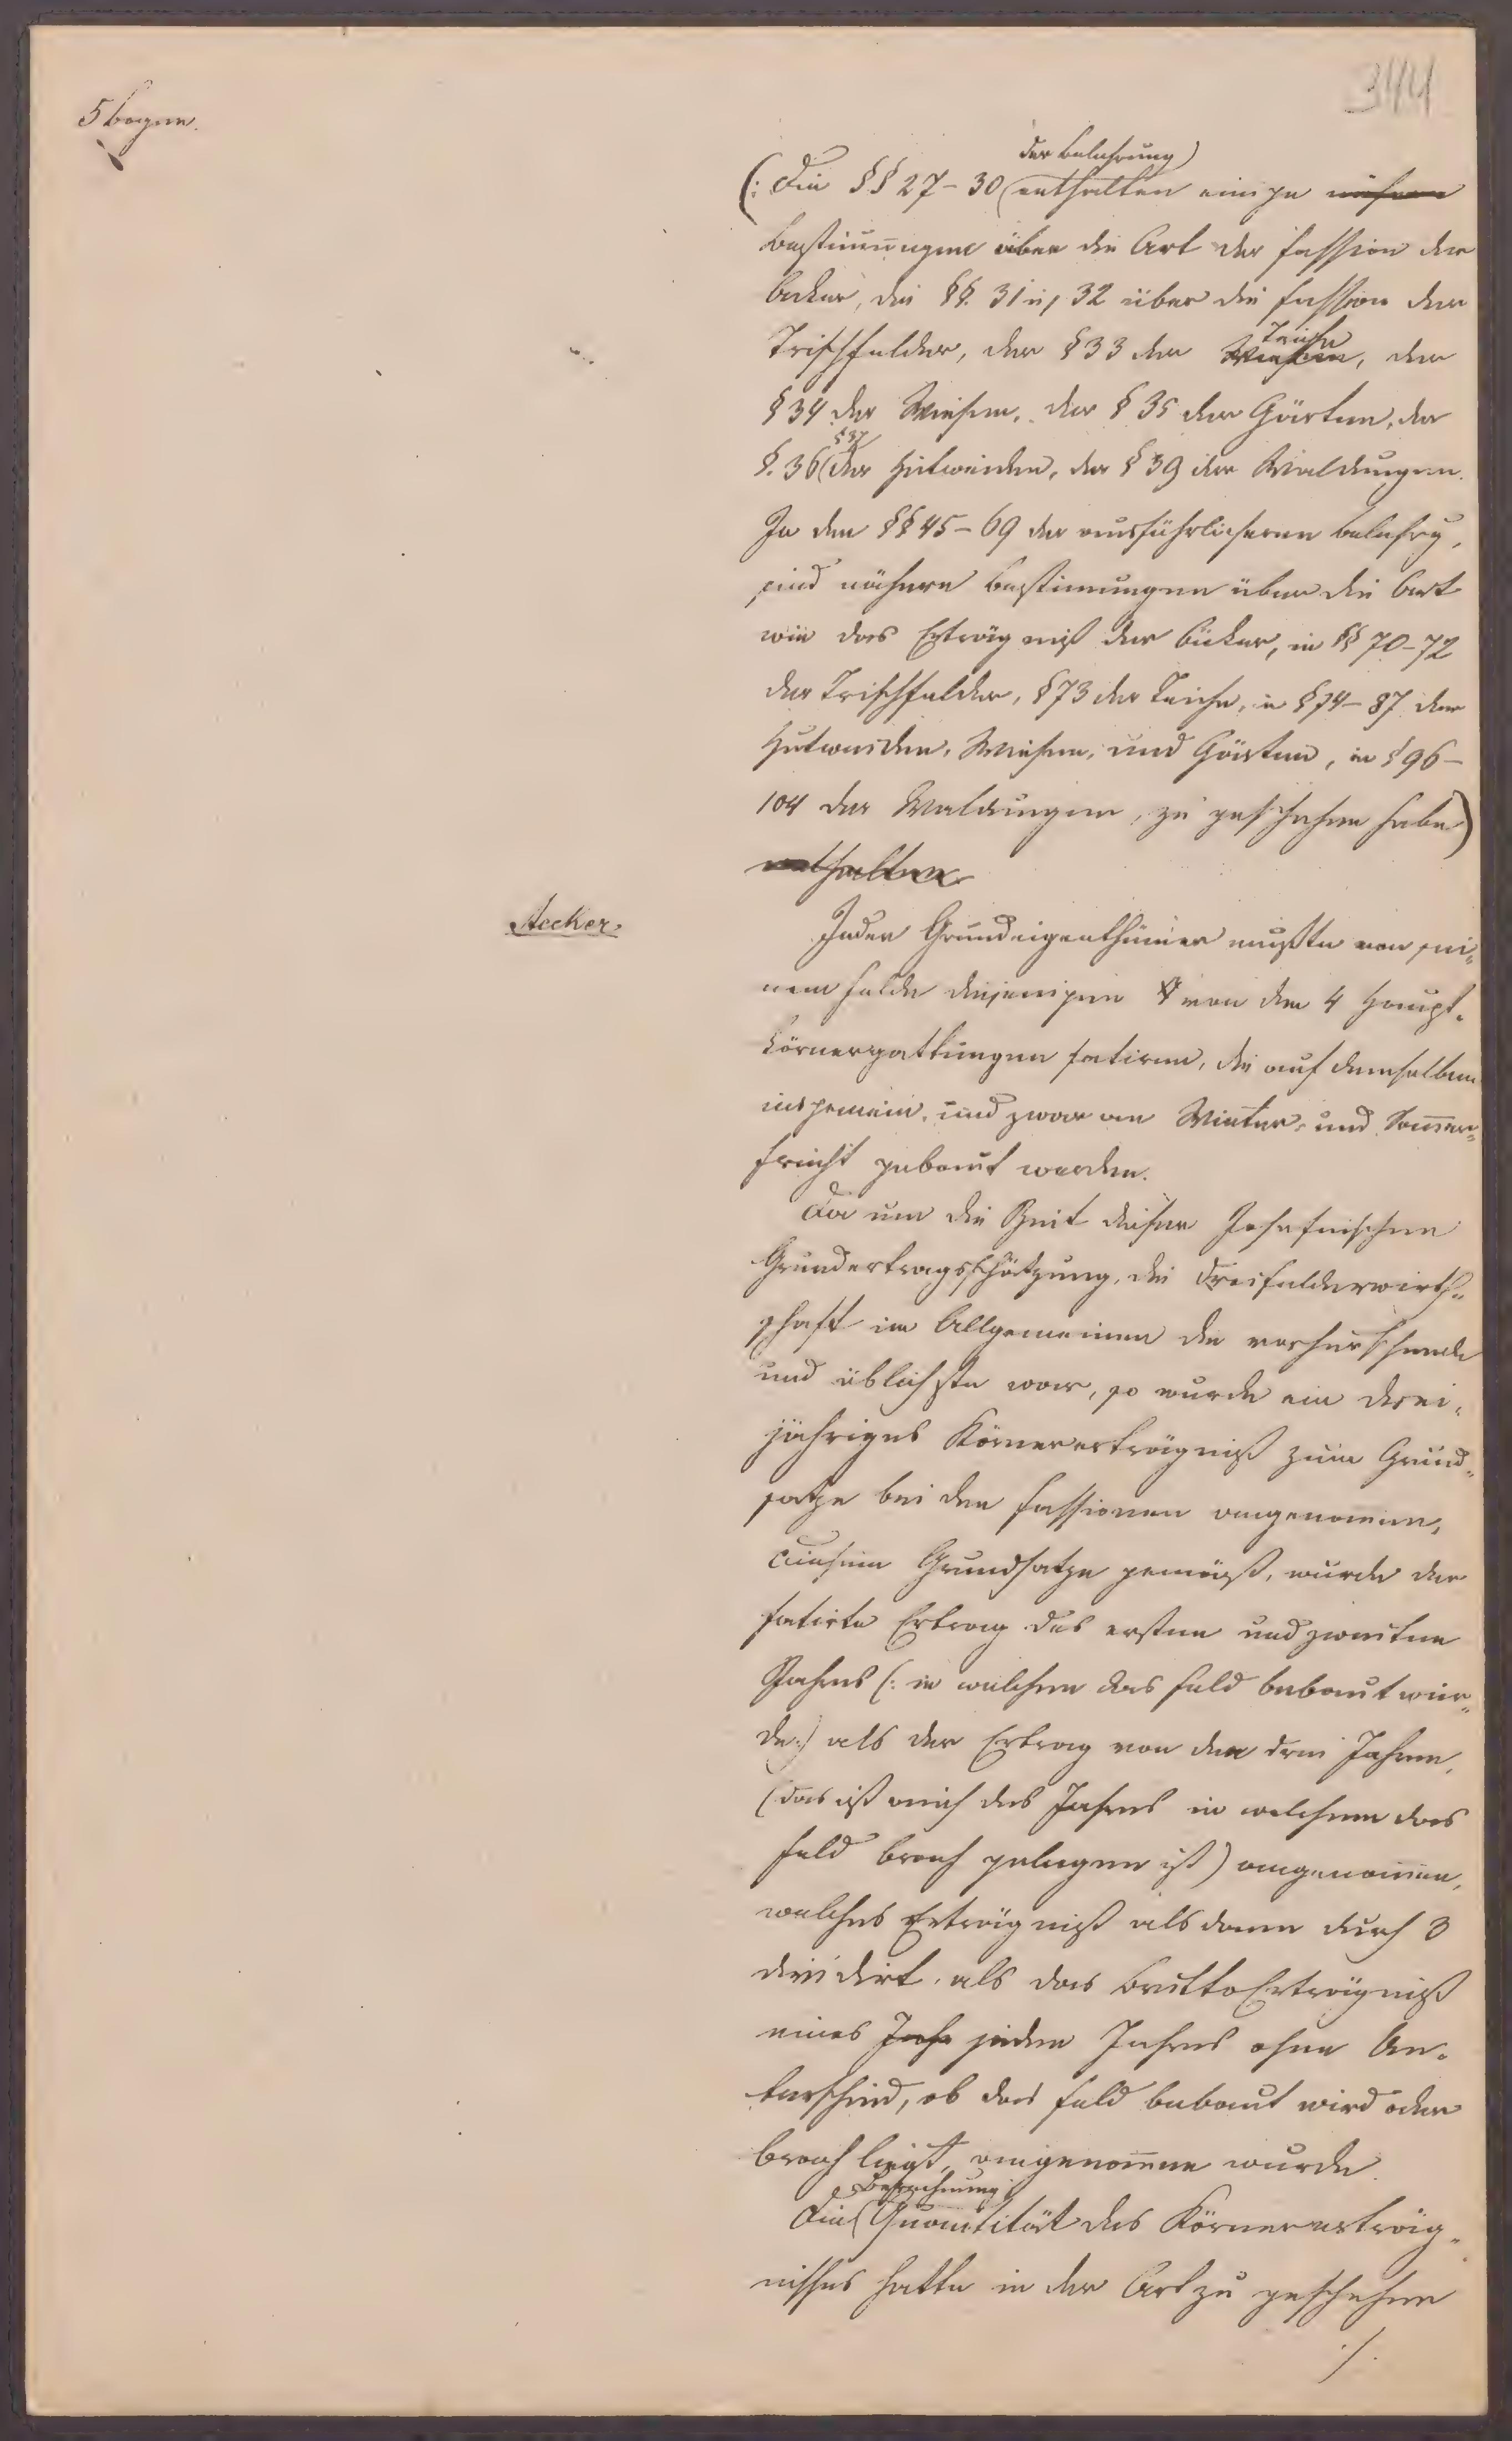 344
5 bogen.
der Belehrung)
(: Die §§ 27-30 (enthalten einige nähere
Bestim̄ungen über die Art der Fassion der
Aecker, die §§. 31 u, 32 über die Fassion der
Teiche
Trischfelder, der § 33 der Wiesen, der
§ 34 der Wiesen, der § 35 der Gärten, der
§ 37
§. 36 (der Hutweiden, der § 39 der Waldungen.
In den §§ 45-69 der ausführlicheren Belehrg,
sind nähere Bestimungen über die Art
wie das Erträgniß der Äcker, in §§ 70-72
der Trischfelder, § 73 der Teiche, in § 74-87 der
Hutweiden, Wiesen, und Gärten, in § 96-
104 der Waldungen, zu geschehen habe)
enthalten
Aecker
Jeder Grundeigenthümer mußte von sei„
nem Felde diejenigen von den 4 Haupt-
körnergattungen fatiren, die auf demselben
insgemein, und zwar an Winter- und Som̄er„
frucht gebaut werden.
Da um die Zeit dieser Josefinischen
Grundertragsschätzung, die Dreifelderwirth„
schaft im Allgemeinen die vorherschende
und üblichste war, so wurde ein drei-
jähriges Körnererträgniß zum Grund„
satze bei den Fassionen angenomen,
Diesem Grundsatze gemäß, wurde der
fatirte Ertrag des ersten und zweiten
Jahres (: in welchem das Feld bebaut wur„
de:) als der Ertrag von den drei Jahren,
(das ist auch des Jahres in welchem das
Feld brach gelegen ist) angenom̄en,
welches Erträgniß alsdann durch 3
dividirt, als das BruttoErträgniß
eines Jahr jeden Jahres ohne Un-
terschied, ob das Feld bebaut wird oder
brach liegt, angenom̄en wurde.
Berechnung
Die (Quantität des Körnererträg„
nisses hatte in der Art zu geschehen
./.